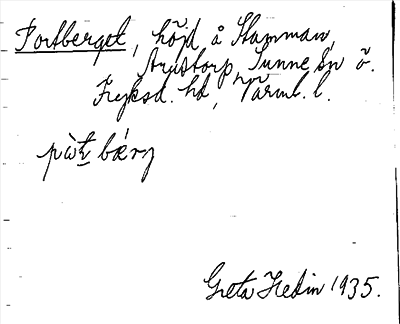 Portberget, höjd å Stamman,
Arnstorp, Sunne sn ö.
Fryksd. hd, Värml. l.
pàt bærj
Greta Hedin 1935.